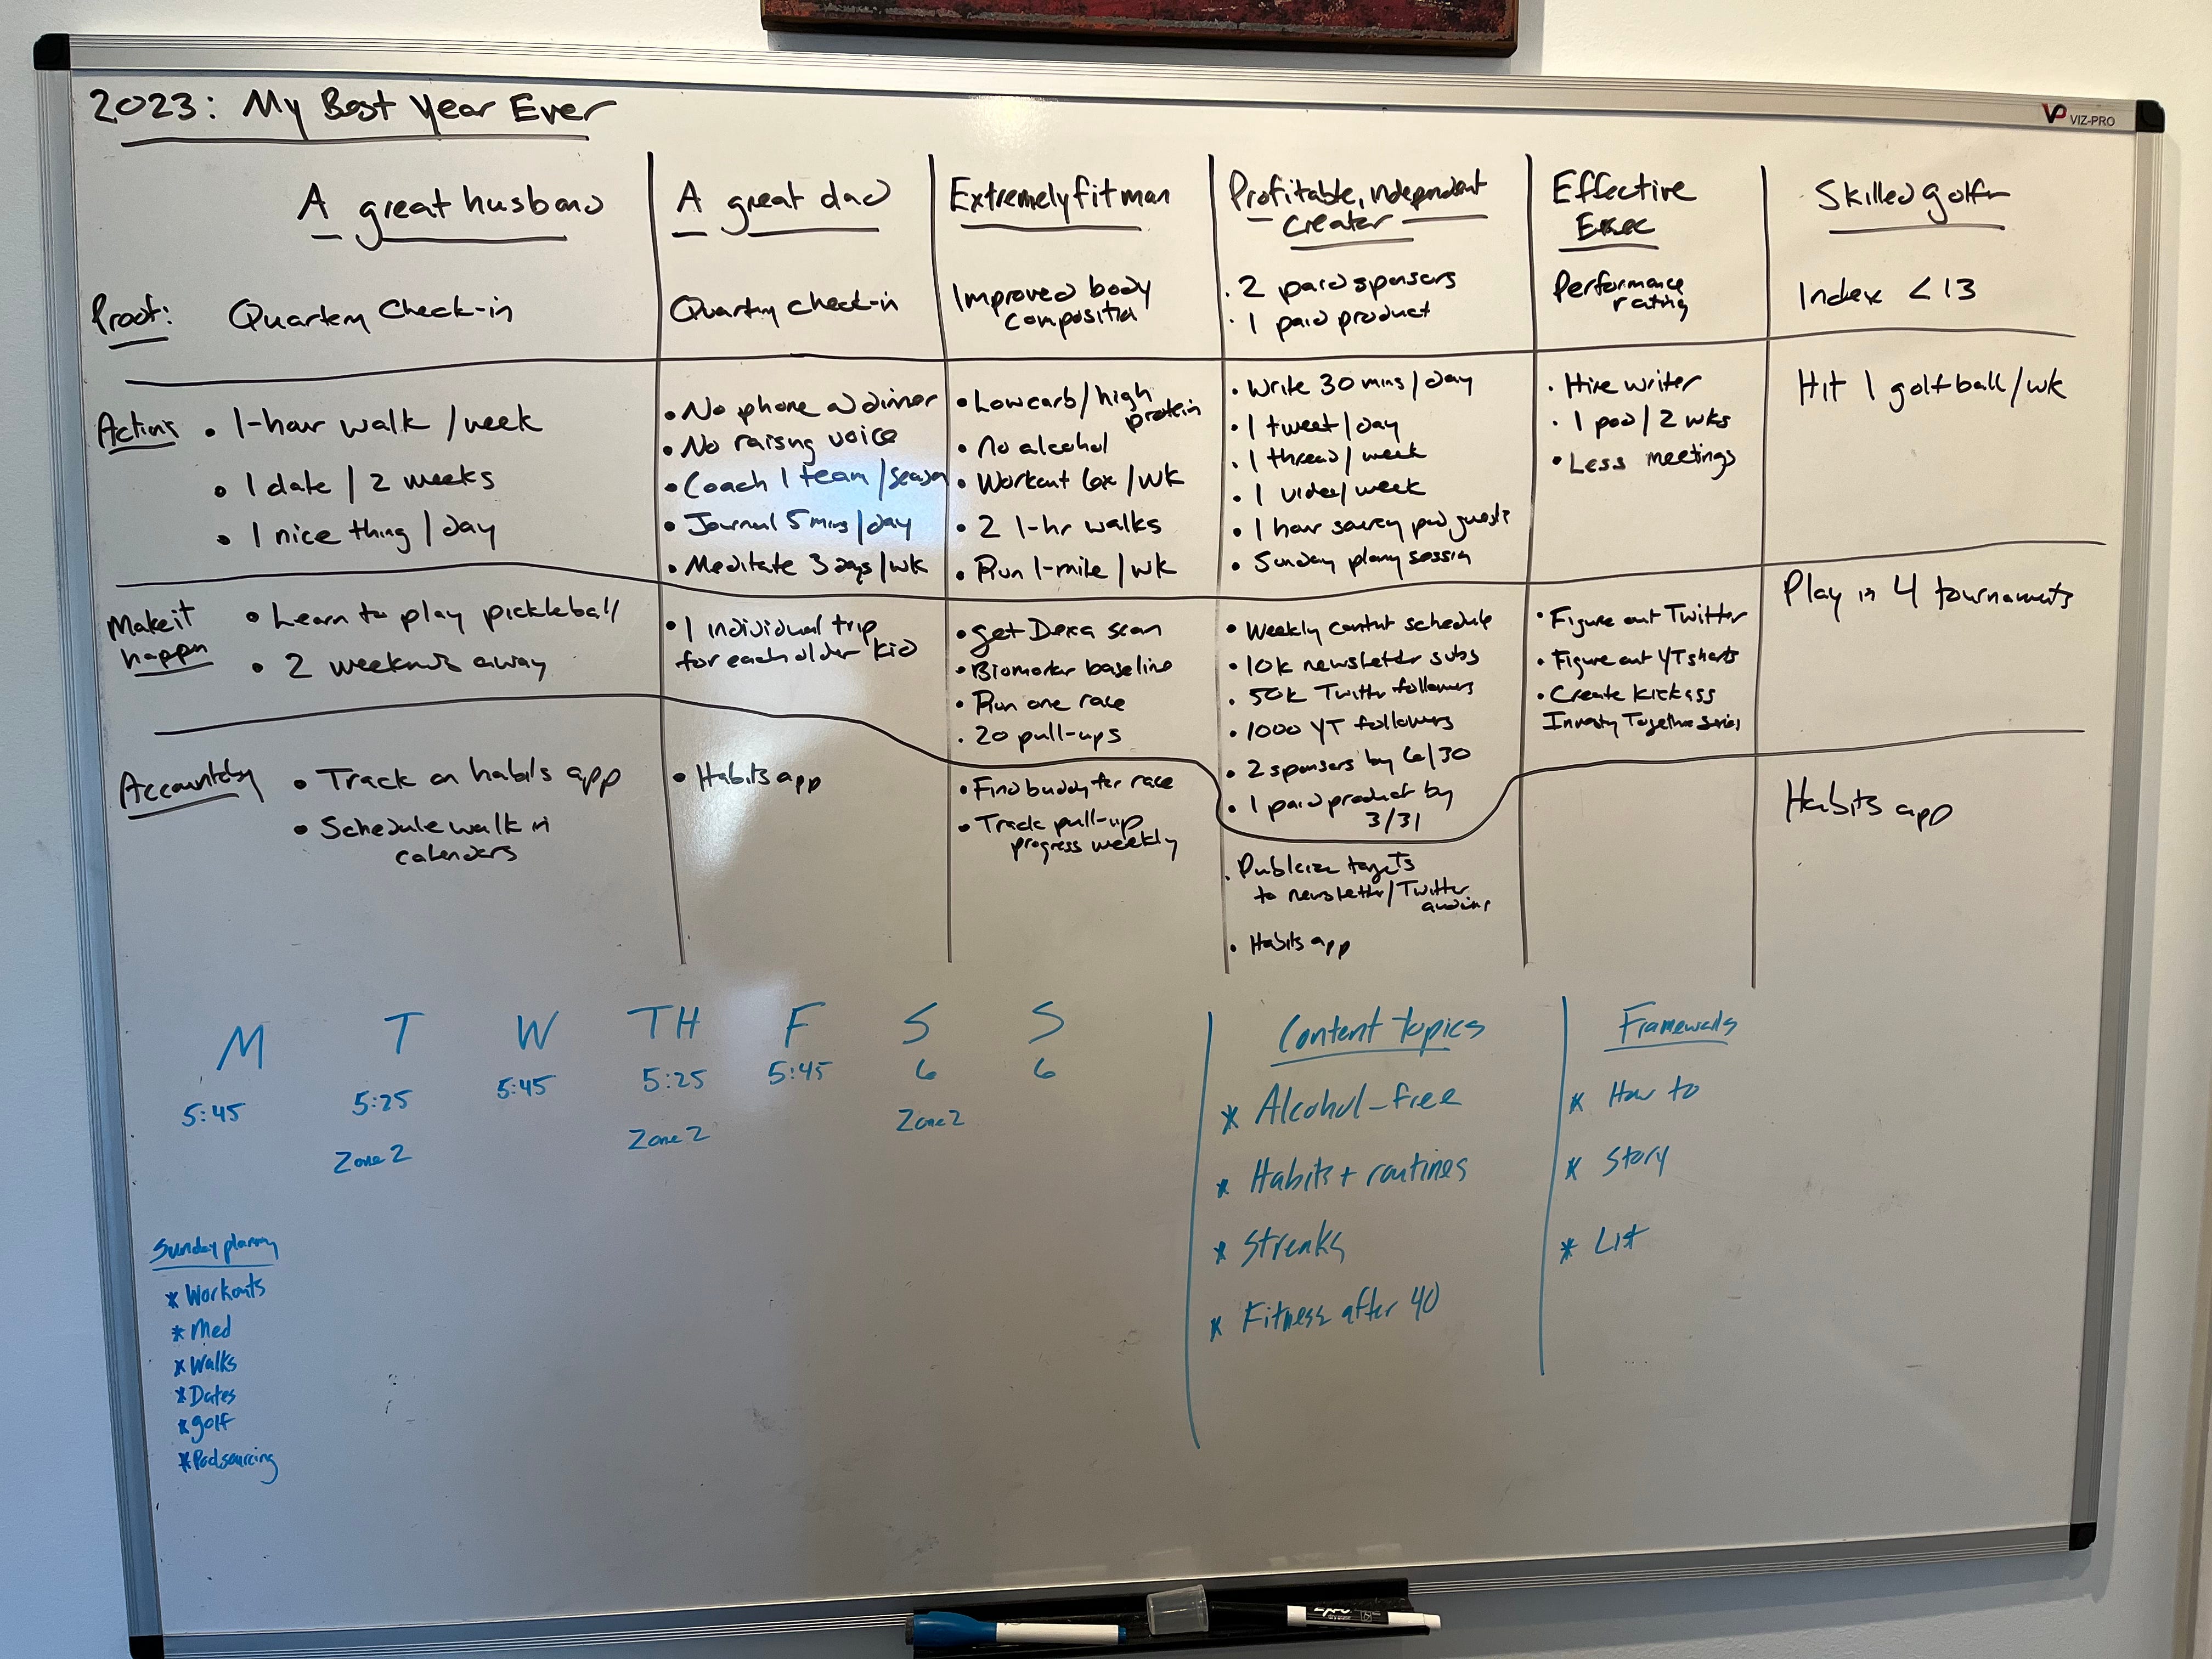 2023: My Best Year Ever
VP VIZ-PRO
A great husband
A great dad
Extremely fit man
Profitable, independent
creator
Effective
Exec
Skilled golfr
Proof:
Quarterly Check-in
Quartly check-in
Improved body
composition
• 2 paid sponsers
• 1 paid product
Performance
rating
Index < 13
Actions
• 1-hour walk / week
• 1 date / 2 weeks
• 1 nice thing / day
• No phone @ dinner
• No raisng voice
• Coach 1 team / season
• Journal 5 mins / day
• Meditate 3 days / wk
• Low carb / high
protein
• No alcohol
• Workout 6x / wk
• 2 1-hr walks
• Run 1-mile / wk
• Write 30 mins / day
• 1 tweet / day
• 1 thread / week
• 1 video / week
• 1 hour pod guests
• Sunday session
• Hire writer
• 1 pod / 2 wks
• Less meetings
Hit 1 golf ball / wk
Make it
happn
• Learn to play pickleball
• 2 weekends away
• 1 individual trip
for each older kid
• get Dexa scan
• Biomarker baseline
• Run one race
• 20 pull-ups
• Weekly content schedule
• 10k newsletter subs
• 50k Twitter followers
• 1000 YT followers
• 2 sponsers by 6/30
• 1 paid product by
3/31
• Figure out Twitter
• Figure out YT shorts
• Create kickass
Together series
Play in 4 tournaments
• Track on habits app
• Schedule walk in
calendars
• Habits app
• Find buddy for race
• Track pull-up
progress weekly
• Publicize targets
to newsletter / Twitter
• Habits app
Habits app
M T W TH F S S
5:45 5:25 5:45 5:25 5:45 6 6
Zone 2 Zone 2 Zone 2
Content topics
* Alcohol-free
* Habits + routines
* Streaks
* Fitness after 40
Frameworks
* How to
* Story
* List
Sunday planning
* Workouts
* Med
* Walks
* Dates
* golf
* Pod sourcing